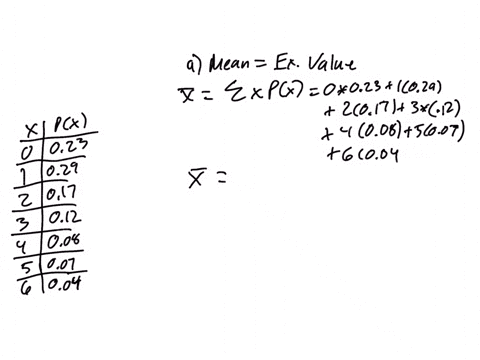 a) Mean = Ex. Value
x̄ = Σ x P(x) = 0*0.23+1(0.29)
+ 2(0.17)+3*(.12)
+4(0.08)+5(0.07)
+6(0.04
x̄ =
x P(x)
0 0.23
1 0.29
2 0.17
3 0.12
4 0.08
5 0.07
6 0.04